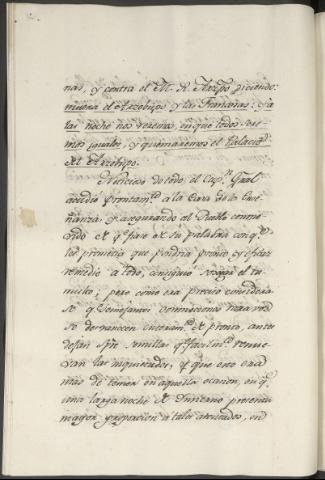 nas, y contra el M. R. Arzpo diciendo:
muera el Arzobispo y las Fransesas; y a
la noche nos veremos, en que todos sere-
mos iguales, y quemaremos el Palacio
del Arzobispo.
Noticioso de todo, el Cap.n Gral
acudió prontam.te a la Casa de la Ense-
ñanza, y asegurando al Pueblo conmo-
vido de q.e fiase de su palabra con q.e
les prometia que pondria pronto, y eficaz
remedio a todo, consiguió sosegar el tu-
multo; pero como era preciso considerar
se q.e semejantes conmociones rara vez
se desvanecen enteram.te de pronto, antes
dejan sp.re semillas q.e facilm.te renue-
van las inquietudes, y que esto era
mas de temer en aquella ocasion, en q.e
una larga noche de Invierno presenta
mayor proporcion a tales atentados, en